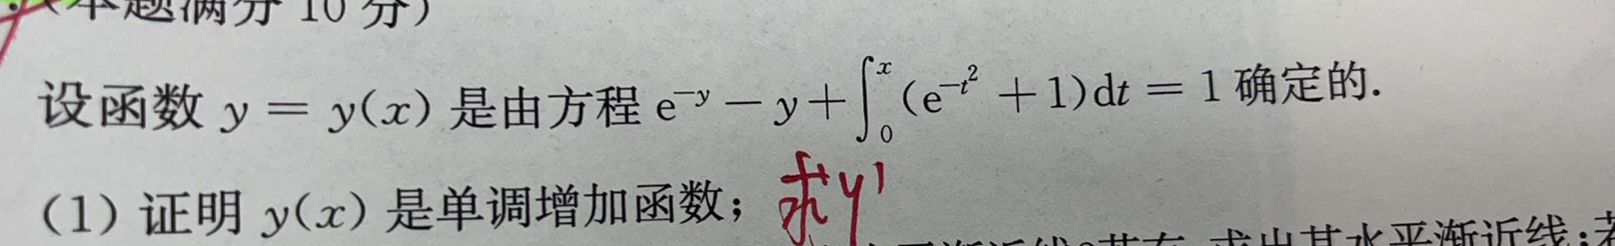 (本题满分 10 分)
设函数 y = y(x) 是由方程 e^{-y} - y + ∫_0^x (e^{-t^2} + 1)dt = 1 确定的.
(1) 证明 y(x) 是单调增加函数; 求y'
求出其水平渐近线;